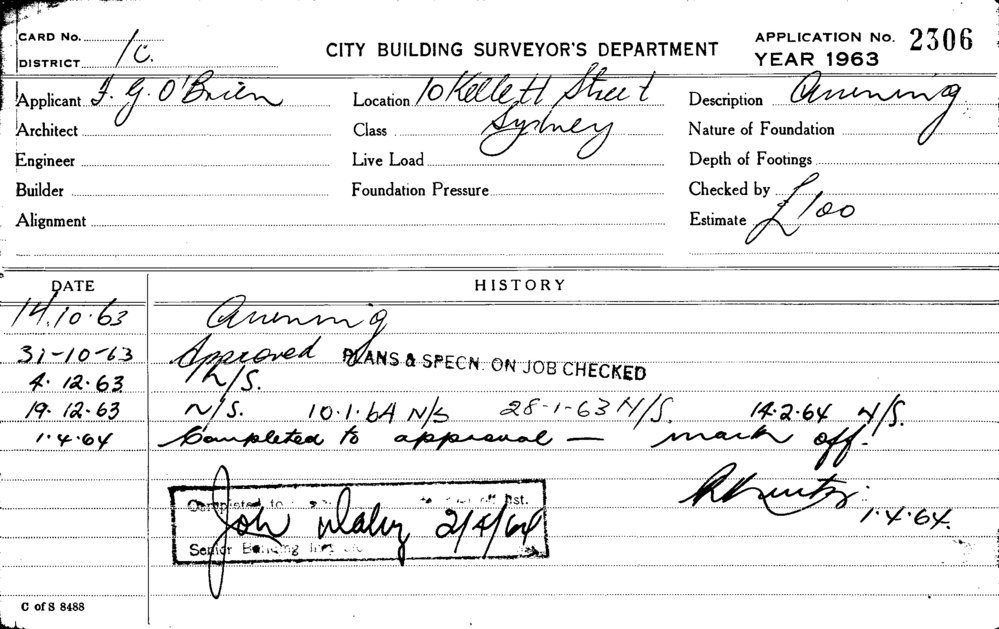 CARD No.
DISTRICT 1C.
CITY BUILDING SURVEYOR'S DEPARTMENT
APPLICATION No. 2306
YEAR 1963
Applicant F. G. O'Brien
Location 10 Kellett Street
Sydney
Description Awning
Architect
Class
Nature of Foundation
Engineer
Live Load
Depth of Footings
Builder
Foundation Pressure
Checked by
Alignment
Estimate £100
DATE HISTORY
14.10.63 Awning
31-10-63 Approved PLANS & SPECN. ON JOB CHECKED
4.12.63 N/S.
19.12.63 N/S. 10.1.64 N/S 28-1-63 N/S. 14.2.64 N/S.
1.4.64 Completed to approval — mark off.
1.4.64.
Completed to off list.
2/4/64
Senior Building
C of S 8488